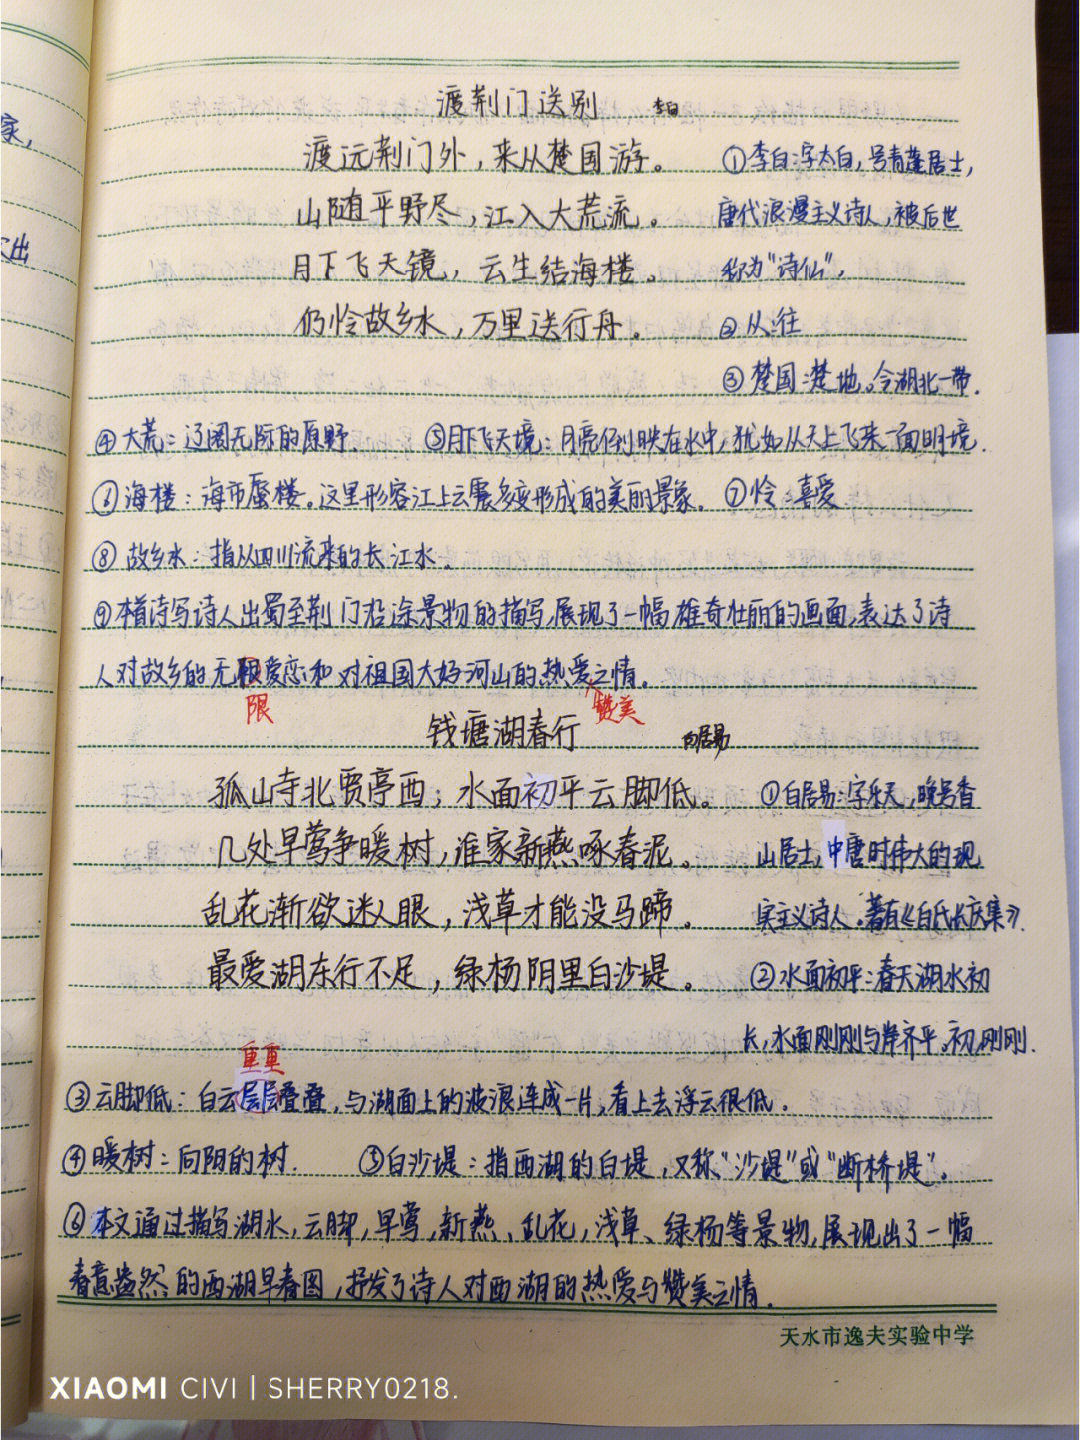 家,
出
渡荆门送别 李白
渡远荆门外，来从楚国游。 ①李白:字太白，号青莲居士，
山随平野尽，江入大荒流。 唐代浪漫主义诗人，被后世
月下飞天镜，云生结海楼。 称为"诗仙"，
仍怜故乡水，万里送行舟。 ②从:往
③楚国:楚地。今湖北一带.
④大荒:辽阔无际的原野. ⑤月下飞天境:月亮倒映在水中，犹如从天上飞来一面明境.
⑥海楼:海市蜃楼。这里形容江上云霞多变形成的美丽景象. ⑦怜:喜爱
⑧故乡水:指从四川流来的长江水.
⑨本首诗写诗人出蜀至荆门沿途景物的描写,展现了一幅雄奇壮丽的画面,表达了诗
人对故乡的无限爱恋和对祖国大好河山的热爱之情.
限 赞美
钱塘湖春行 白居易
孤山寺北贾亭西；水面初平云脚低。 ①白居易:字乐天,晚号香
几处早莺争暖树，谁家新燕啄春泥。 山居士,中唐时伟大的现
乱花渐欲迷人眼，浅草才能没马蹄。 实主义诗人。著有《白氏长庆集》.
最爱湖东行不足，绿杨阴里白沙堤。 ②水面初平:春天湖水初
长,水面刚刚与岸齐平,初,刚刚.
重重
③云脚低:白云层层叠叠，与湖面上的波浪连成一片,看上去浮云很低.
④暖树:向阴的树. ⑤白沙堤:指西湖的白堤，又称"沙堤"或"断桥堤".
⑥本文通过描写湖水,云脚,早莺,新燕、乱花,浅草、绿杨等景物,展现出了一幅
春意盎然的西湖早春图，抒发了诗人对西湖的热爱与赞美之情.
天水市逸夫实验中学
XIAOMI CIVI | SHERRY0218.